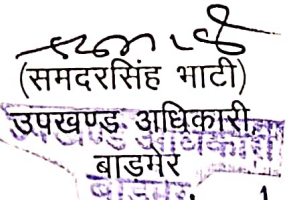 (समदरसिंह भाटी)
उपखण्ड अधिकारी,
बाडमेर